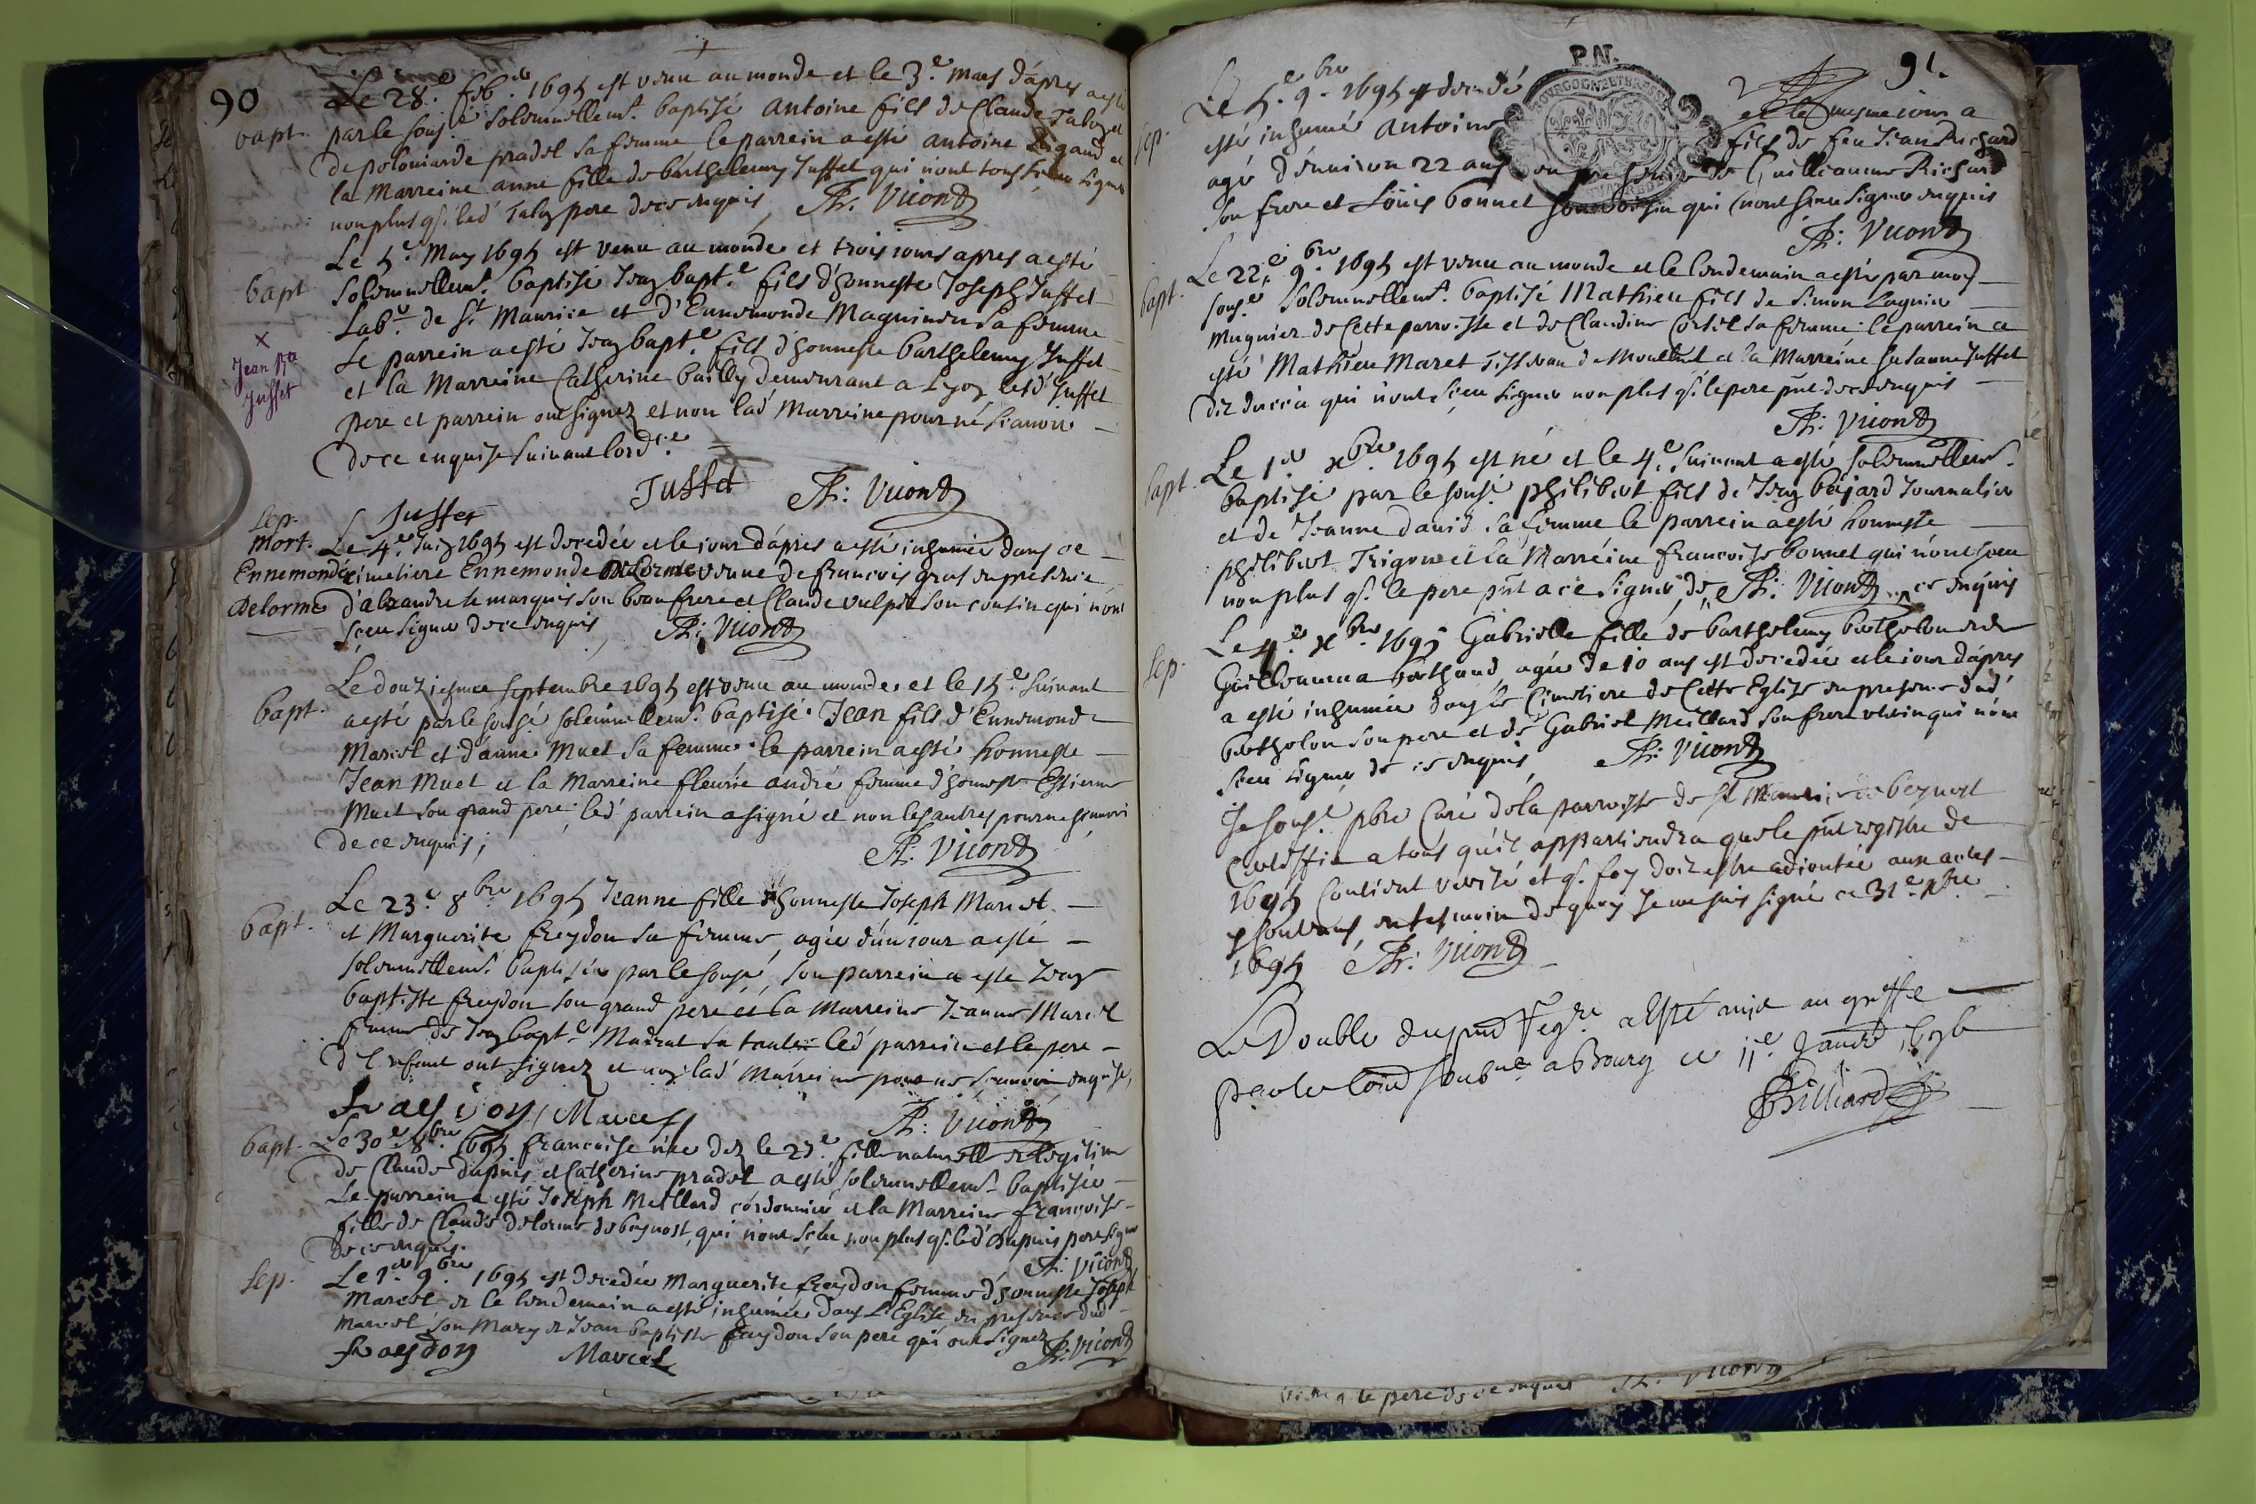 90
Le 28.e feb.r 1695 est venu au monde et le 3.e mars d'apres a esté
bapt. par le sous.é solemnellem.t baptisé Antoine fils de Claude Taloz et
de poloniarde pradel sa femme le parrein a esté Antoine Rigaud et
la Marreine anne fille de barthelemy Juffet qui n'ont tous sceu signer
non plus q. led. Taloz pere de ce enquis Ph: Vicond
Le 5.e May 1695 est venu au monde et trois iours apres a esté
bapt solemnellem.t baptisé Jean bapt.e fils d'honneste Joseph Juffet
Lab.r de S.t Maurice et d'Ennemonde Maguinieu sa femme
Le parrein a esté Jean bapt.e fils d'honneste barthelemy Juffet
x
Jean B.te
Juffet
et la Marreine Catherine bailly demeurant a Lyon lesd. Juffet
pere et parrein ont signez et non lad. Marreine pour ne scavoir
de ce enquise suivant lord.ce
Juffet Ph: Vicond
Juffet
Sep.
mort. Le 4.e Juin 1695 est decedée et le iour d'apres a esté inhumée dans ce
Ennemonde cimetiere Ennemonde Delorme veuve de francois gras en presence
Delorme d'alexandre le marquis son beau frere et Claude vulpit son cousin qui n'ont
sceu signer de ce enquis Ph: Vicond
Le douziesme septembre 1695 est venu au monde et le 15.e suivant
bapt. a esté par le sousé solemnellem.t baptisé Jean fils d'Ennemond
Marcel et d'anne Muet sa femme; le parrein a esté honneste
Jean Muet et la Marreine fleurie andré femme d'honneste Estienne
Muet son grand pere; led. parrein a signé et non les autres pour ne scavoir
de ce enquis;
Ph: Vicond
Le 23.e 8.bre 1695 Jeanne fille d'honneste Joseph Marcel
bapt. et Marguerite freydon sa femme, agée d'un iour a esté
solemnellem.t baptisée par le sousé, son parrein a esté Jean
baptiste freydon son grand pere et la Marreine Jeanne Marcel
femme de Jean bapt.e sa tante led. parrein et le pere
de l'enfant ont signez et non lad. Marreine pour ne scavoir enquise,
fraydon Marcel Ph: Vicond
bapt. Le 30.e 8.bre 1695 francoise née dez le 27.e fille naturelle et legitime
de Claude dupuis et Catherine pradel a esté solemnellem.t baptisée
Le parrein a esté Joseph Meillard cordonnier et la Marreine francoise
fille de Claude delorme de beynost, qui n'ont sceu non plus q. led. dupuis pere signer
de ce enquis. Ph: Vicond
Sep. Le 1.er 9.bre 1695 est decedée Marguerite freydon femme d'honneste Joseph
Marcel et le lendemain a esté inhumée dans L'Eglise en presence dud.
Marcel son Mary et Jean baptiste freydon son pere qui ont signez
fraydon Marcel Ph: Vicond
P.N. 91.
Le 5.e 9.bre 1695 est decedé et le mesme iour a
sep. esté inhumé Antoine fils de feu Jean Richard
agé d'environ 22 ans en presence de Guilleaume Richard
son frere et Loüis bonnet son cousin qui n'ont sceu signer enquis
Ph: Vicond
Le 22.e 9.bre 1695 est venu au monde et le lendemain a esté par moy
bapt. sous.é solemnellem.t baptisé Mathieu fils de simon Laguin
mugnier de Cette parroisse et de Claudine Cortel sa femme: le parrein a
esté Mathieu Maret Tisseran de Montluel et la Marreine susanne Juffet
qui n'ont sceu signer non plus q. le pere pñt de ce enquis
Ph: Vicond
bapt. Le 1.er x.bre 1695 est né et le 4.e suivant a esté solemnellem.t
baptisé par le sousé philibert fils de Jean bejard Journalier
et de Jeanne david sa femme le parrein a esté honneste
philibert Trigon et la Marreine francoise bonnet qui n'ont sceu
non plus q. le pere pñt a ce signer, de Ph: Vicond ce enquis
Sep. Le 4.e x.bre 1695 Gabrielle fille de barthelemy bertholon et de
Guillauma berthaud agée de 10 ans est decedée et le iour d'apres
a esté inhumée dans le Cimetiere de Cette Eglise en presence dud.
bertholon son pere et de Gabriel Meillard son frere uterin qui n'ont
sceu signer de ce enquis Ph: Vicond
Je sous.é pbre Curé de la parroisse de S.t Maurice de beynost
Certiffie a tous qu'il appartiendra que le pñt registre de
1695 Contient verité et q. foy doit estre adioutée aux actes
y contenus, en tesmoin de quoy Je me suis signé ce 31.e x.bre
1695 Ph: Vicond
Le Double du pnt Reg.re a esté mis au greffe
par le Curé sousné a Bourg ce 11.e Janvier 1696
Billiard
le pere de ce enquis Ph. Vicond